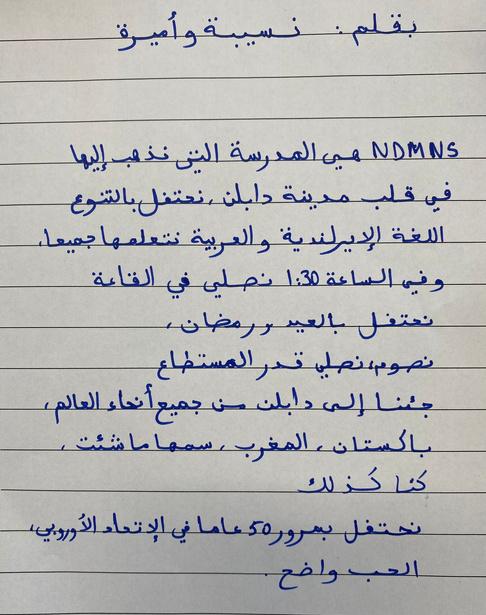 بقلم: نسيبة وأميرة
NDMNS هي المدرسة التي نذهب إليها
في قلب مدينة دابلن، نحتفل بالتنوع
اللغة الإيرلندية والعربية نتعلمها جميعا،
وفي الساعة 1:30 نصلي في القاعة
نحتفل بالعيد ورمضان،
نصوم، نصلي قدر المستطاع
جئنا إلى دابلن من جميع أنحاء العالم،
باكستان، المغرب، سمها ما شئت،
كنا كذلك
نحتفل بمرور 50 عاما في الإتحاد الأوروبي،
الحب واضح.